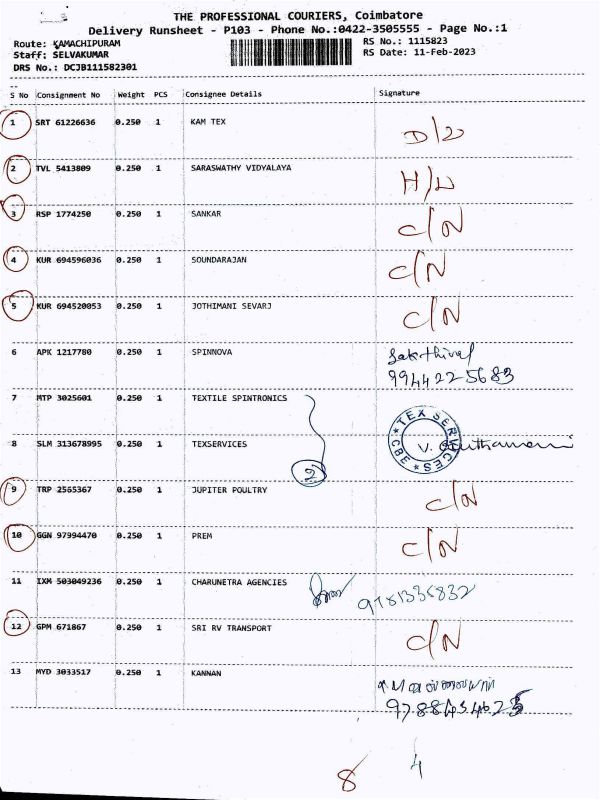 THE PROFESSIONAL COURIERS, Coimbatore
Delivery Runsheet - P103 - Phone No.:0422-3505555 - Page No.:1
Route: KAMACHIPURAM
RS No.: 1115823
Staff: SELVAKUMAR
RS Date: 11-Feb-2023
DRS No.: DCJB111582301
S No Consignment No Weight PCS Consignee Details Signature
1 SRT 61226636 0.250 1 KAM TEX D/L
2 TVL 5413809 0.250 1 SARASWATHY VIDYALAYA H/D
3 RSP 1774250 0.250 1 SANKAR C/N
4 KUR 694596036 0.250 1 SOUNDARAJAN C/N
5 KUR 694520053 0.250 1 JOTHIMANI SEVARJ C/N
6 APK 1217780 0.250 1 SPINNOVA Sakthivel
9944225683
7 MTP 3025601 0.250 1 TEXTILE SPINTRONICS
TEX SERVICES
CBE
8 SLM 313678995 0.250 1 TEXSERVICES
2
9 TRP 2565367 0.250 1 JUPITER POULTRY C/N
10 GGN 97994470 0.250 1 PREM C/N
11 IXM 503049236 0.250 1 CHARUNETRA AGENCIES
12 GPM 671867 0.250 1 SRI RV TRANSPORT C/N
13 MYD 3033517 0.250 1 KANNAN
8 4